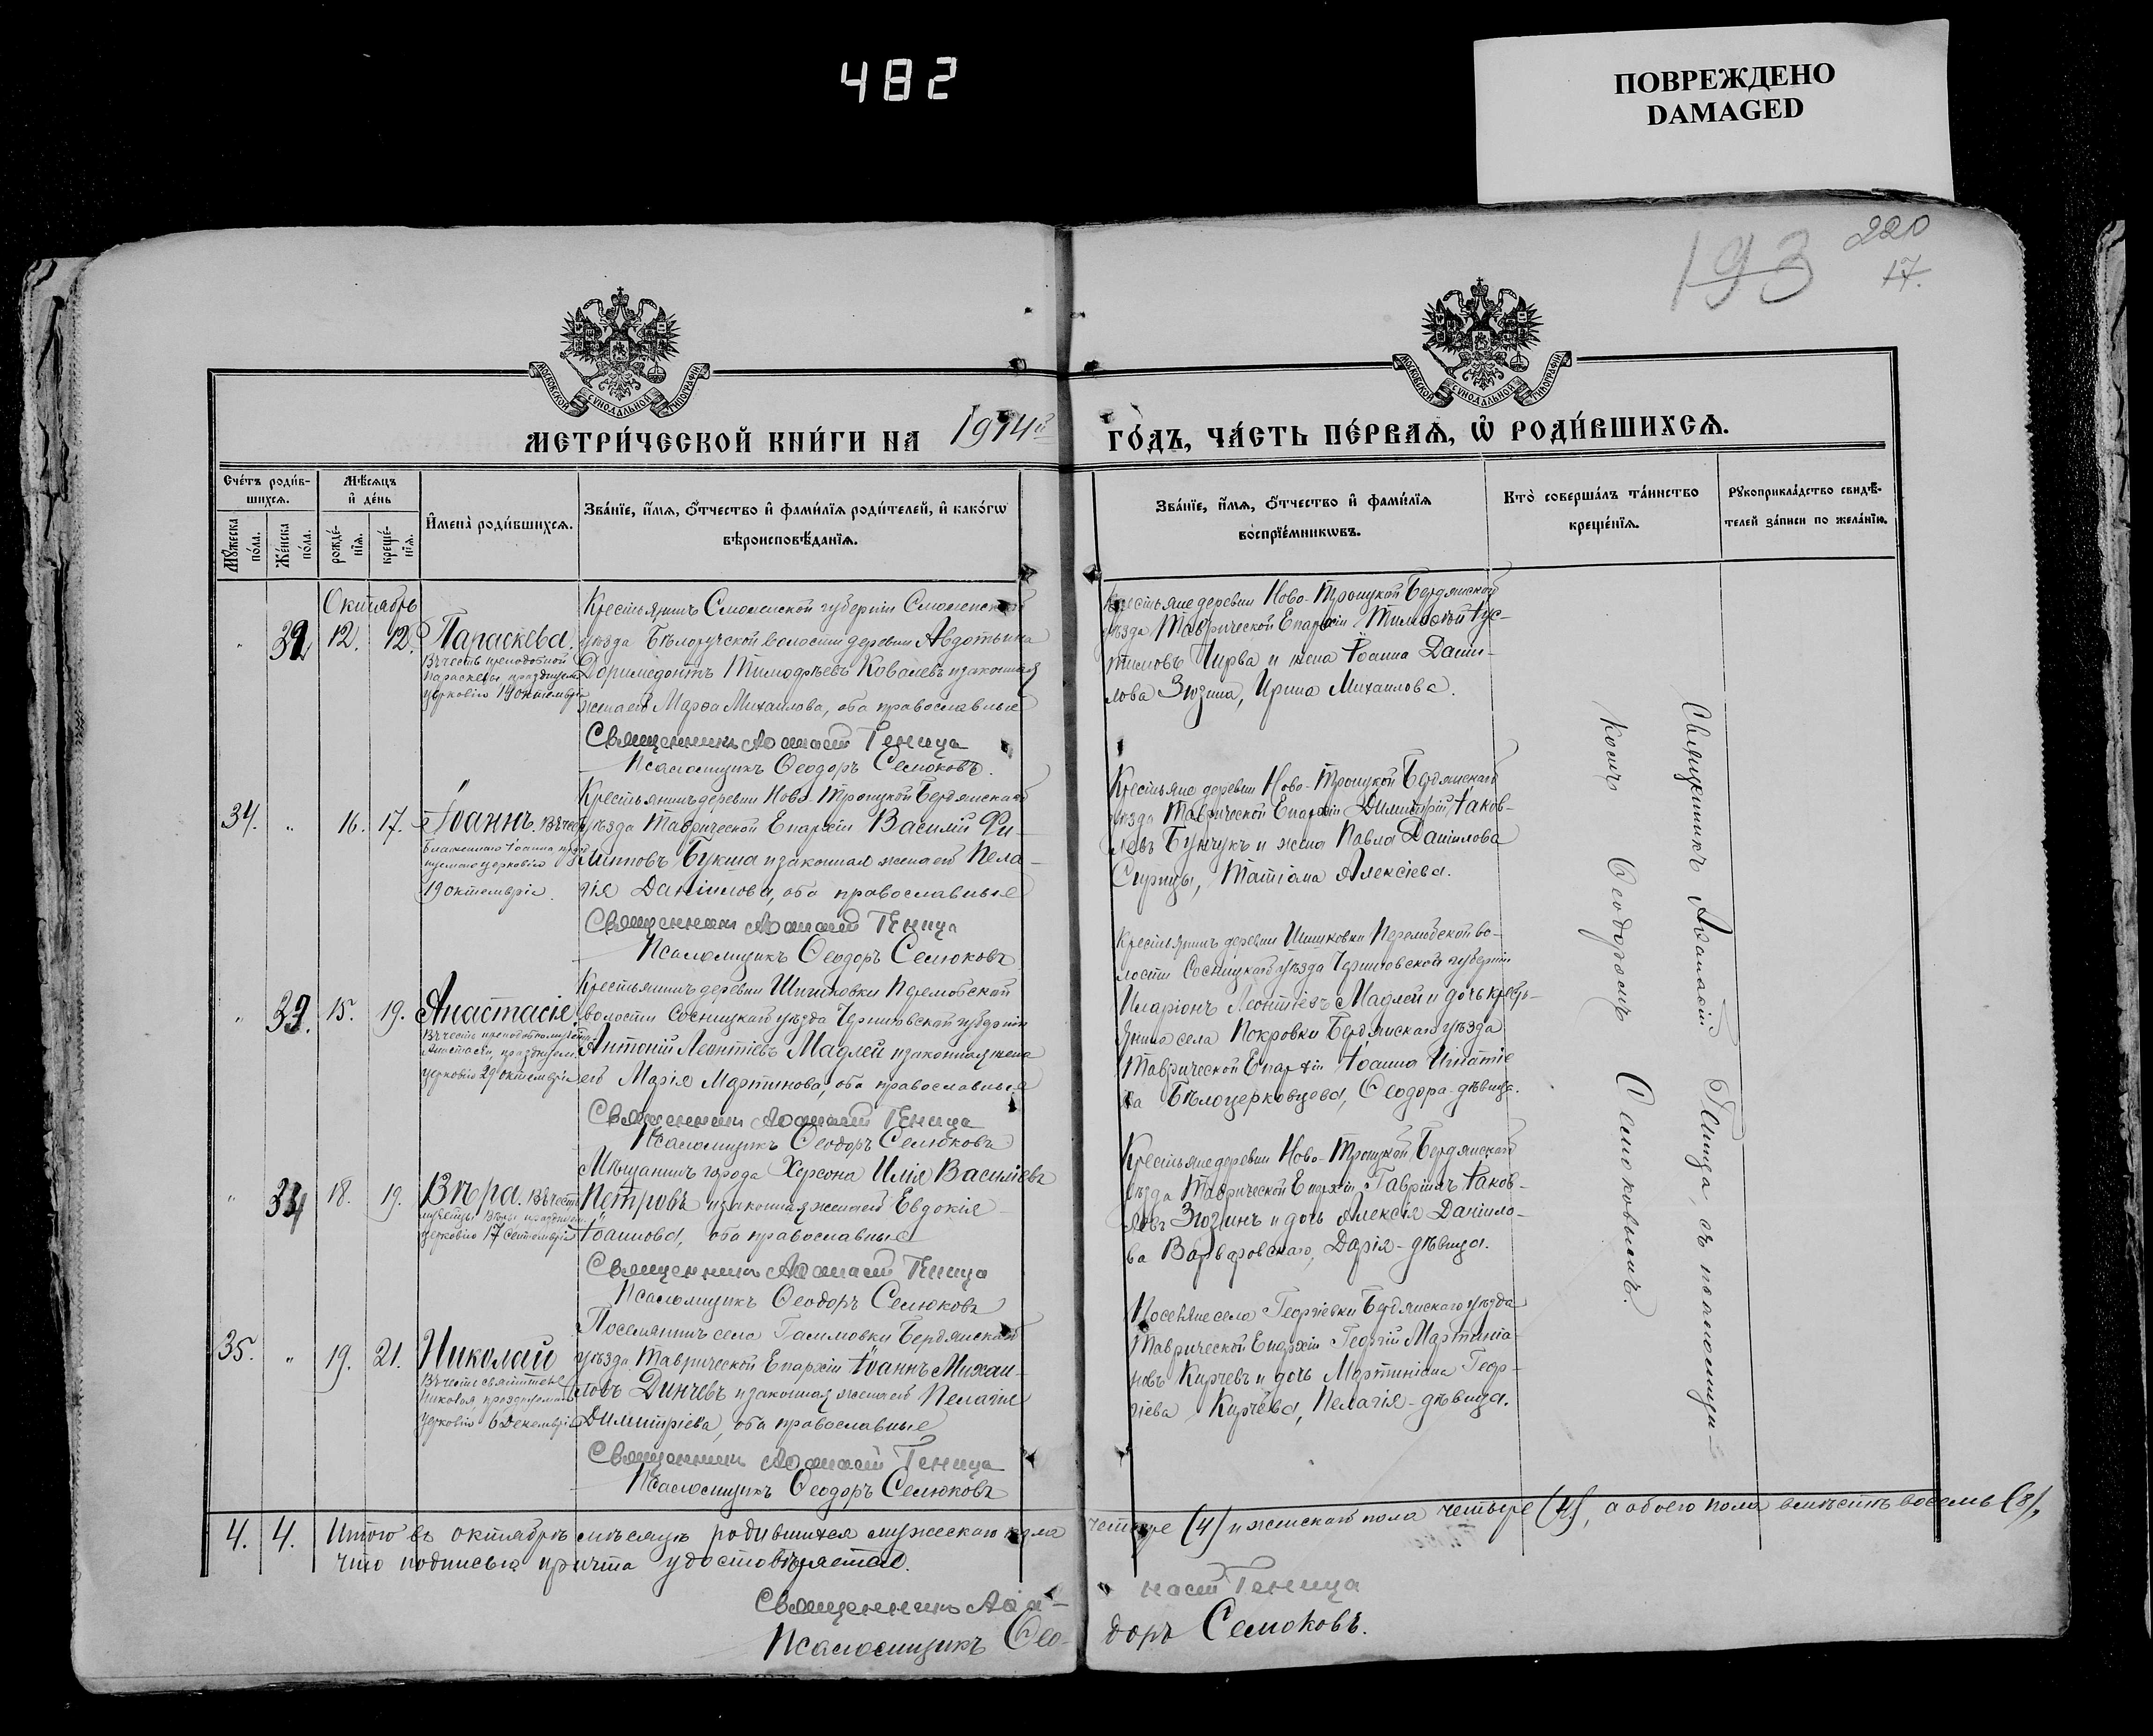 482
ПОВРЕЖДЕНО
DAMAGED
193
220
17.
МОСКОВСКОЙ СѴНОДАЛЬНОЙ ТИПОГРАФІИ
МОСКОВСКОЙ СѴНОДАЛЬНОЙ ТИПОГРАФІИ
МЕТРИ́ЧЕСКОЙ КНИ́ГИ НА 1914й
ГО́ДЪ, ЧА́СТЬ ПЕ́РВАѦ, Ѡ҆ РОДИ́ВШИХСѦ.
Сче́тъ роди́в-
шихсѧ.
Мѣ́сѧцъ
и҆ де́нь
Мꙋ́жеска
по́ла.
Же́нска
по́ла.
рожде́-
нїѧ.
креще́-
нїѧ.
И҆мена̀ роди́вшихсѧ.
Зва́нїе, и҆́мѧ, ѻ҆́тчество и҆ фамѝлїѧ роди́телей, и҆ како́гѡ
вѣроисповѣ́данїѧ.
Зва́нїе, и҆́мѧ, ѻ҆́тчество и҆ фами́лїѧ
воспрїе́мникѡвъ.
Кто̀ соверша́лъ та́инство
креще́нїѧ.
Рꙋкоприкла́дство свидѣ́-
телей за́писи по жела́нїю.
Октябрь
" 32 12. 12. Параскева.
Въ честь преподобной
Параскевы, празднуем.
церковію 14 октемврія
Крестьянинъ Смоленской губерніи Смоленскаго
уѣзда Бѣлоручской волости деревни Авдотьина
Доримедонтъ Тимофѣевъ Ковалевъ и законная
жена его Марѳа Михаилова, оба православные
Священникъ Аѳанасій Геница
Псаломщикъ Ѳеодоръ Семоковъ.
Крестьяне деревни Ново-Троицкой Бердянскаго
уѣзда Таврической Епархіи Тимоѳей Іус-
тиновъ Чирва и жена Іоанна Дани-
лова Зюзина, Ирина Михаилова.
34. " 16. 17. Іоаннъ. Въ честь
блаженнаго Іоанна, празд
нуемаго церковію
19 октемврія.
Крестьянинъ деревни Ново-Троицкой Бердянскаго
уѣзда Таврической Епархіи Василій Фи-
липповъ Букша и законная жена его Пела-
гія Даніилова, оба православные
Священникъ Аѳанасій Геница
Псаломщикъ Ѳеодоръ Семоковъ
Крестьяне деревни Ново-Троицкой Бердянскаго
уѣзда Таврической Епархіи Димитрій Іаков-
левъ Бунчукъ и жена Павла Даніилова
Скрипцы, Татіана Алексіева.
" 33. 15. 19. Анастасія
Въ честь преподобномуч.
Анастасіи, празднуем.
церковію 29 октемврія
Крестьянинъ деревни Шишковки Перелюбской
волости Сосницкаго уѣзда Черниговской губерніи
Антоній Леонтіевъ Мадлей и законная жена
его Марія Мартинова, оба православные
Священникъ Аѳанасій Геница
Псаломщикъ Ѳеодоръ Семоковъ
Крестьянинъ деревни Шишковки Перелюбской во-
лости Сосницкаго уѣзда Черниговской губерніи
Иларіонъ Леонтіевъ Мадлей и дочь кресть-
янина села Покровки Бердянскаго уѣзда
Таврической Епархіи Іоанна Игнатіе
ва Бѣлоцерковцева, Ѳеодора-дѣвица.
" 34 18. 19. Вѣра. Въ честь
мученицы Вѣры, празднуем.
церковію 17 Сентемврія
Мѣщанинъ города Херсона Илія Василіевъ
Петровъ и законная жена его Евдокія
Іоаннова, оба православные
Священникъ Аѳанасій Геница
Псаломщикъ Ѳеодоръ Семоковъ
Крестьяне деревни Ново-Троицкой Бердянскаго
уѣзда Таврической Епархіи Гавріилъ Іаков-
левъ Зюзинъ и дочь Алексія Даніило-
ва Варваровскаго, Дарія-дѣвица.
35. " 19. 21. Николай
Въ честь святителя
Николая, празднуемаго
церковію 6 Декемврія
Поселянинъ села Гамовки Бердянскаго
уѣзда Таврической Епархіи Іоаннъ Михаи-
ловъ Динчевъ и законная жена его Пелагія
Димитріева, оба православные
Священникъ Аѳанасій Геница
Псаломщикъ Ѳеодоръ Семоковъ
Поселяне села Георгіевки Бердянскаго уѣзда
Таврической Епархіи Георгій Мартиніа-
новъ Кирчевъ и дочь Мартиніана Геор-
гіева Кирчева, Пелагія-дѣвица.
Священникъ Аѳанасій Геница, съ псаломщи-
комъ Ѳеодоромъ Семоковымъ.
4. 4. Итого въ октябрѣ мѣсяцѣ родившихся мужескаго пола четыре (4) и женскаго пола четыре (4), а обоего пола вмѣстѣ восемь (8),
что подписью причта удостовѣряется.
Священникъ Аѳа-насій Геница
Псаломщикъ Ѳео-доръ Семоковъ.